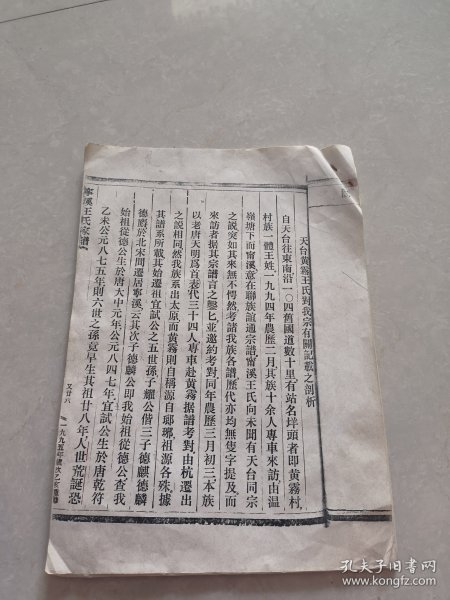 天台黄霧王氏對我宗有關記載之剖析
自天台往東南沿一〇四舊國道數十里有站名坢頭者即黄霧村
村族一體王姓一九九四年農歷二月其族十余人專車來訪由温
嶺塘下而甯溪意在聯族誼通宗譜甯溪王氏向未聞有天台同宗
之説突如其來無不愕然考諸我族各譜歷代亦均無隻字提及而
來訪者据其宗譜言之鑿匕並邀約考對同年農歷三月初三本族
以老唐天明爲首衮代三十四人專車赴黄霧据譜考對由杭遷台
之説相同然我族系出太原而黄霧則自稱源自瑯琊祖源各殊據
其譜系所載其始遷祖宜試公之五世孫子耀公偕三子德麒德麟
德爵於北宋間遷居寧溪云其次子德麟公即我始祖從德公查我
始祖從德公生於唐大中元年公元八四七年宜試公生於唐乾符
乙未公元八七五年則六世之孫竟早生其祖廿八年人世荒誕恐
寧溪王氏家譜
又廿六
一九九五年歲次乙亥重修
孔夫子旧书网
book.kongfz.com